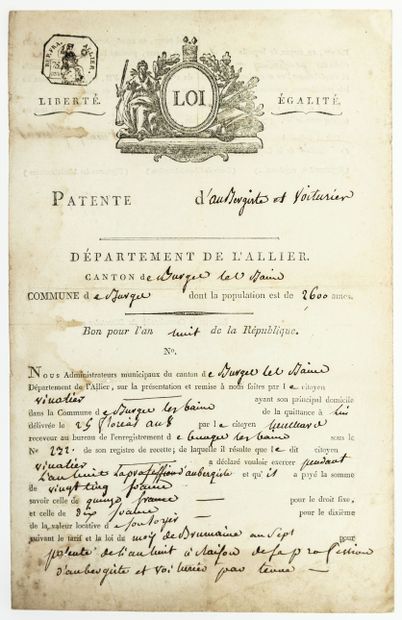 REP. FRA. ALLIER.
LIBERTÉ. LOI ÉGALITÉ.
PATENTE d'aubergiste et voiturier
DÉPARTEMENT DE L'ALLIER.
CANTON de Burge les Bains
COMMUNE de Burge dont la population est de 2600 ames.
Bon pour l'an huit de la République.
No.
Nous Administrateurs municipaux du canton de Burge les Bains
Département de l'Allier, sur la présentation et remise à nous faites par le citoyen
vinatier ayant son principal domicile
dans la Commune de Burge les bains de la quittance à lui
délivrée le 25 floréal an 8 par le citoyen
receveur au bureau de l'enregistrement de les bains sous le
No 232 de son registre de recette; de laquelle il résulte que le dit citoyen
vinatier a déclaré vouloir exercer pendant
L'an huit La profession d'aubergiste et qu'il a payé la somme
de vingt cinq francs
savoir celle de quinze francs pour le droit fixe,
et celle de dix francs pour le dixième
de la valeur locative de son loyer
suivant le tarif et la loi du mois de Brumaine an Sept pour
patente de l'an huit à raison de sa profession
d'aubergiste et voiturier par terre